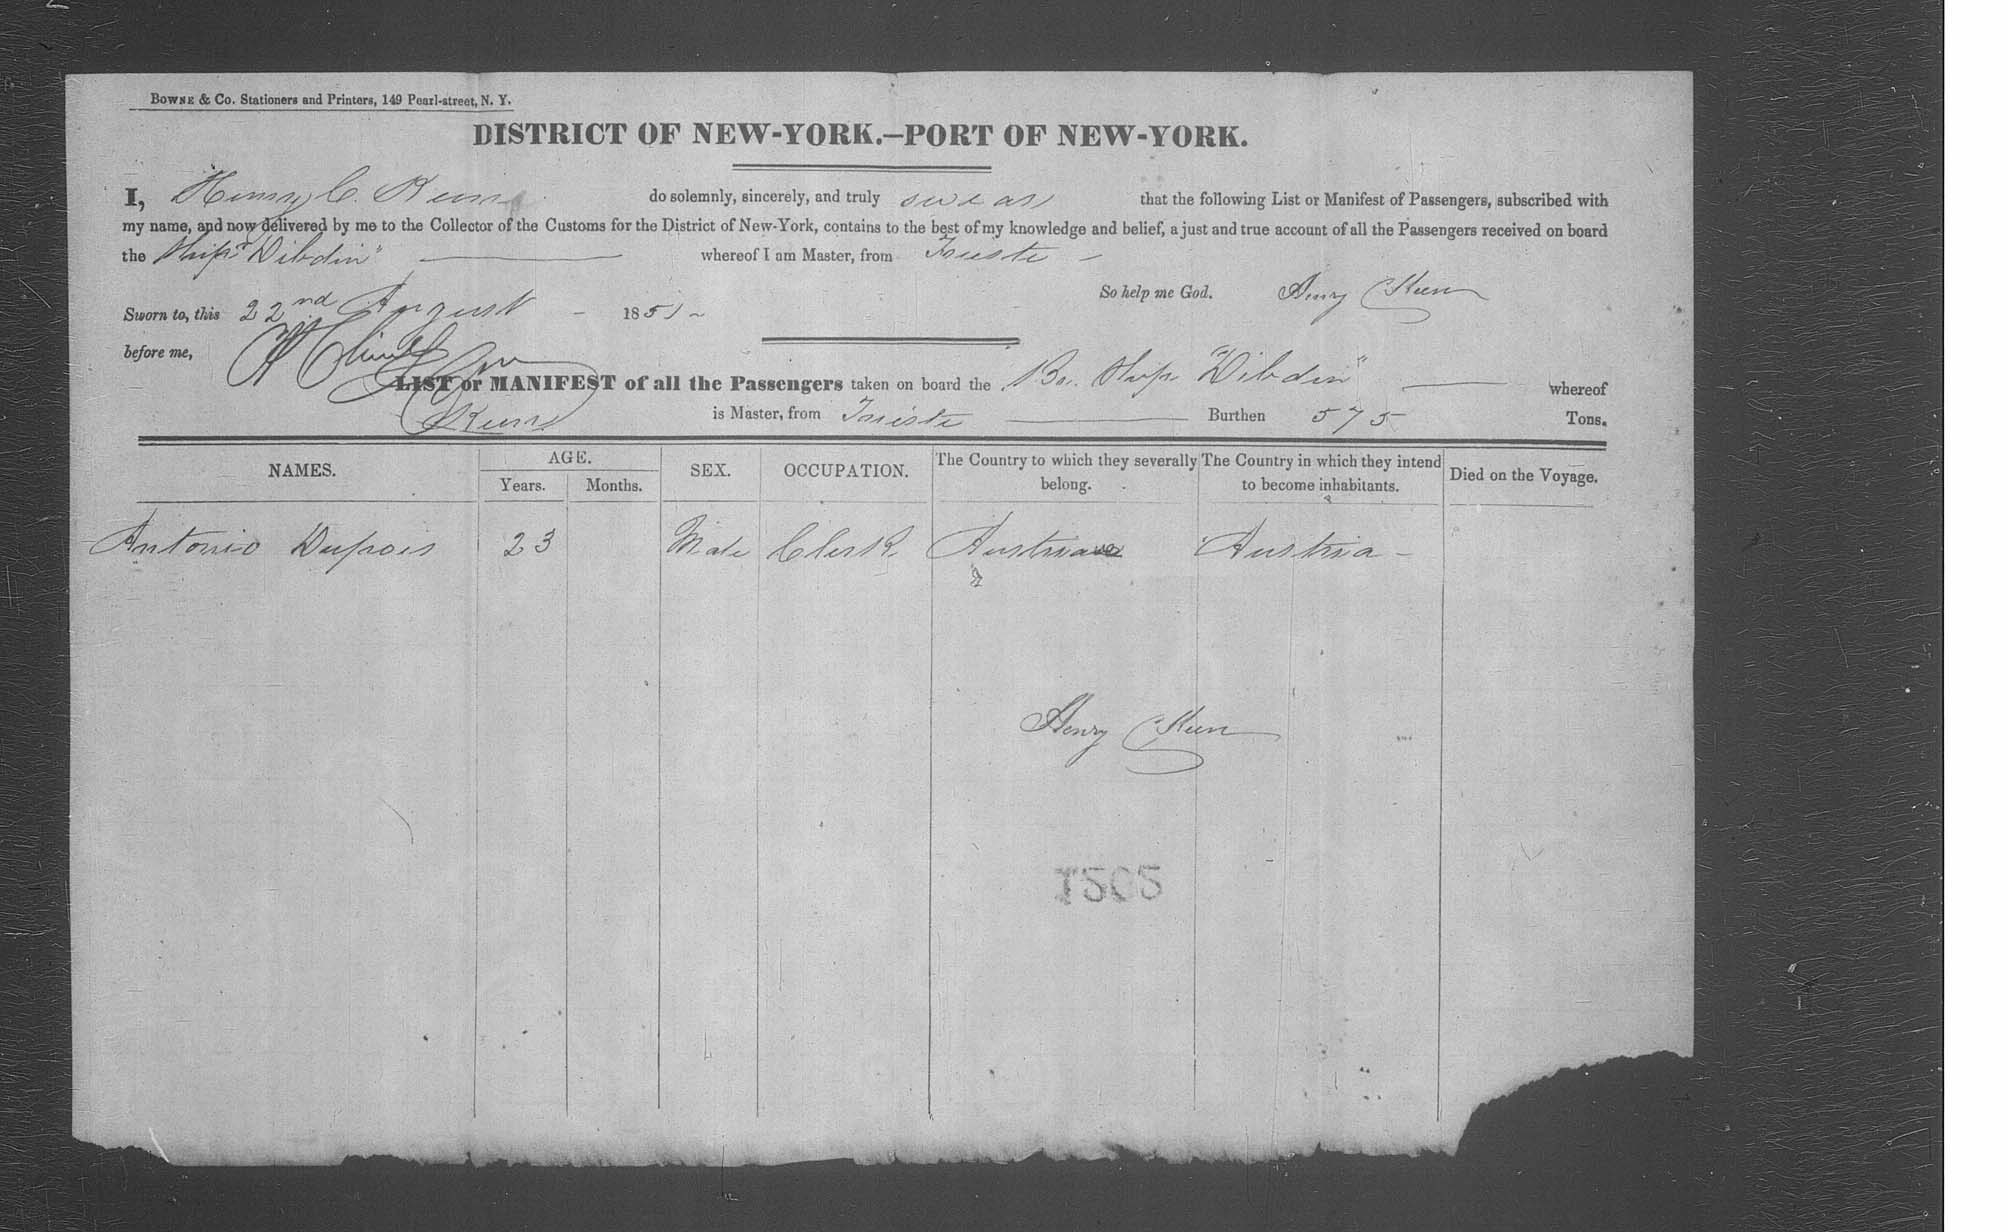 BOWNE & Co. Stationers and Printers, 149 Pearl-street, N. Y.
DISTRICT OF NEW-YORK.—PORT OF NEW-YORK.
I, Henry C. Keen do solemnly, sincerely, and truly swear that the following List or Manifest of Passengers, subscribed with
my name, and now delivered by me to the Collector of the Customs for the District of New-York, contains to the best of my knowledge and belief, a just and true account of all the Passengers received on board
the Ship "Dibdin" whereof I am Master, from Trieste
So help me God. Henry C Keen
Sworn to, this 22nd August 1851
before me,
LIST or MANIFEST of all the Passengers taken on board the Br. Ship "Dibdin" whereof
Keen is Master, from Trieste Burthen 575 Tons.
NAMES. AGE. SEX. OCCUPATION. The Country to which they severally belong. The Country in which they intend to become inhabitants. Died on the Voyage.
Years. Months.
Antonio Dupois 23 Male Clerk Austria Austria
Henry C Keen
1202